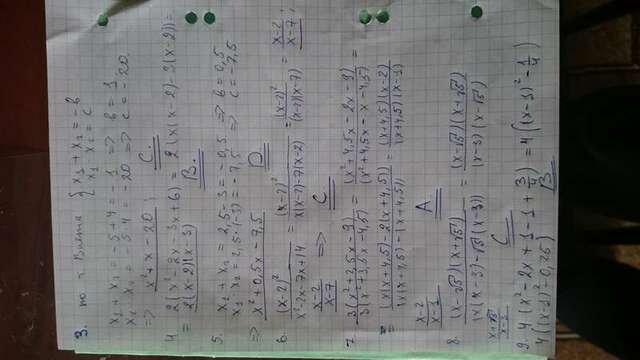 3. по т. Виета { x₁ + x₂ = -b
x₁ · x₂ = c
x₁ + x₂ = -5+4 = -1 => b = 1
x₁ · x₂ = -5·4 = -20 => c = -20.
=> x²+x-20; C.
4. 2(x²-2x-3x+6) = 2(x(x-2)-3(x-2))=
= 2(x-2)(x-3) B.
5. x₁ + x₂ = 2,5-3 = -0,5 => b=0,5
x₁ · x₂ = 2,5·(-3) = -7,5 => c=-7,5
=> x²+0,5x-7,5 D
6. (x-2)²/(x²-2x-7x+14) = (x-2)²/(x(x-2)-7(x-2)) = (x-2)²/((x-2)(x-7)) = (x-2)/(x-7);
(x-2)/(x-7) => C
7. 3(x²+2,5x-9)/3(x²+3,5x-4,5) = (x²+4,5x-2x-9)/(x²+4,5x-x-4,5) =
= (x(x+4,5)-2(x+4,5))/(x(x+4,5)-(x+4,5)) = (x+4,5)(x-2)/(x+4,5)(x-1)
(x-2)/(x-1) A.
8. (x-√5)(x+√5)/(x(x-3)-√5(x-3)) = (x-√5)(x+√5)/(x-3)(x-√5)
(x+√5)/(x-3) C
9. 4(x²-2x+1-1+3/4) = 4((x-1)²-1/4)
4((x-1)²-0,25) B